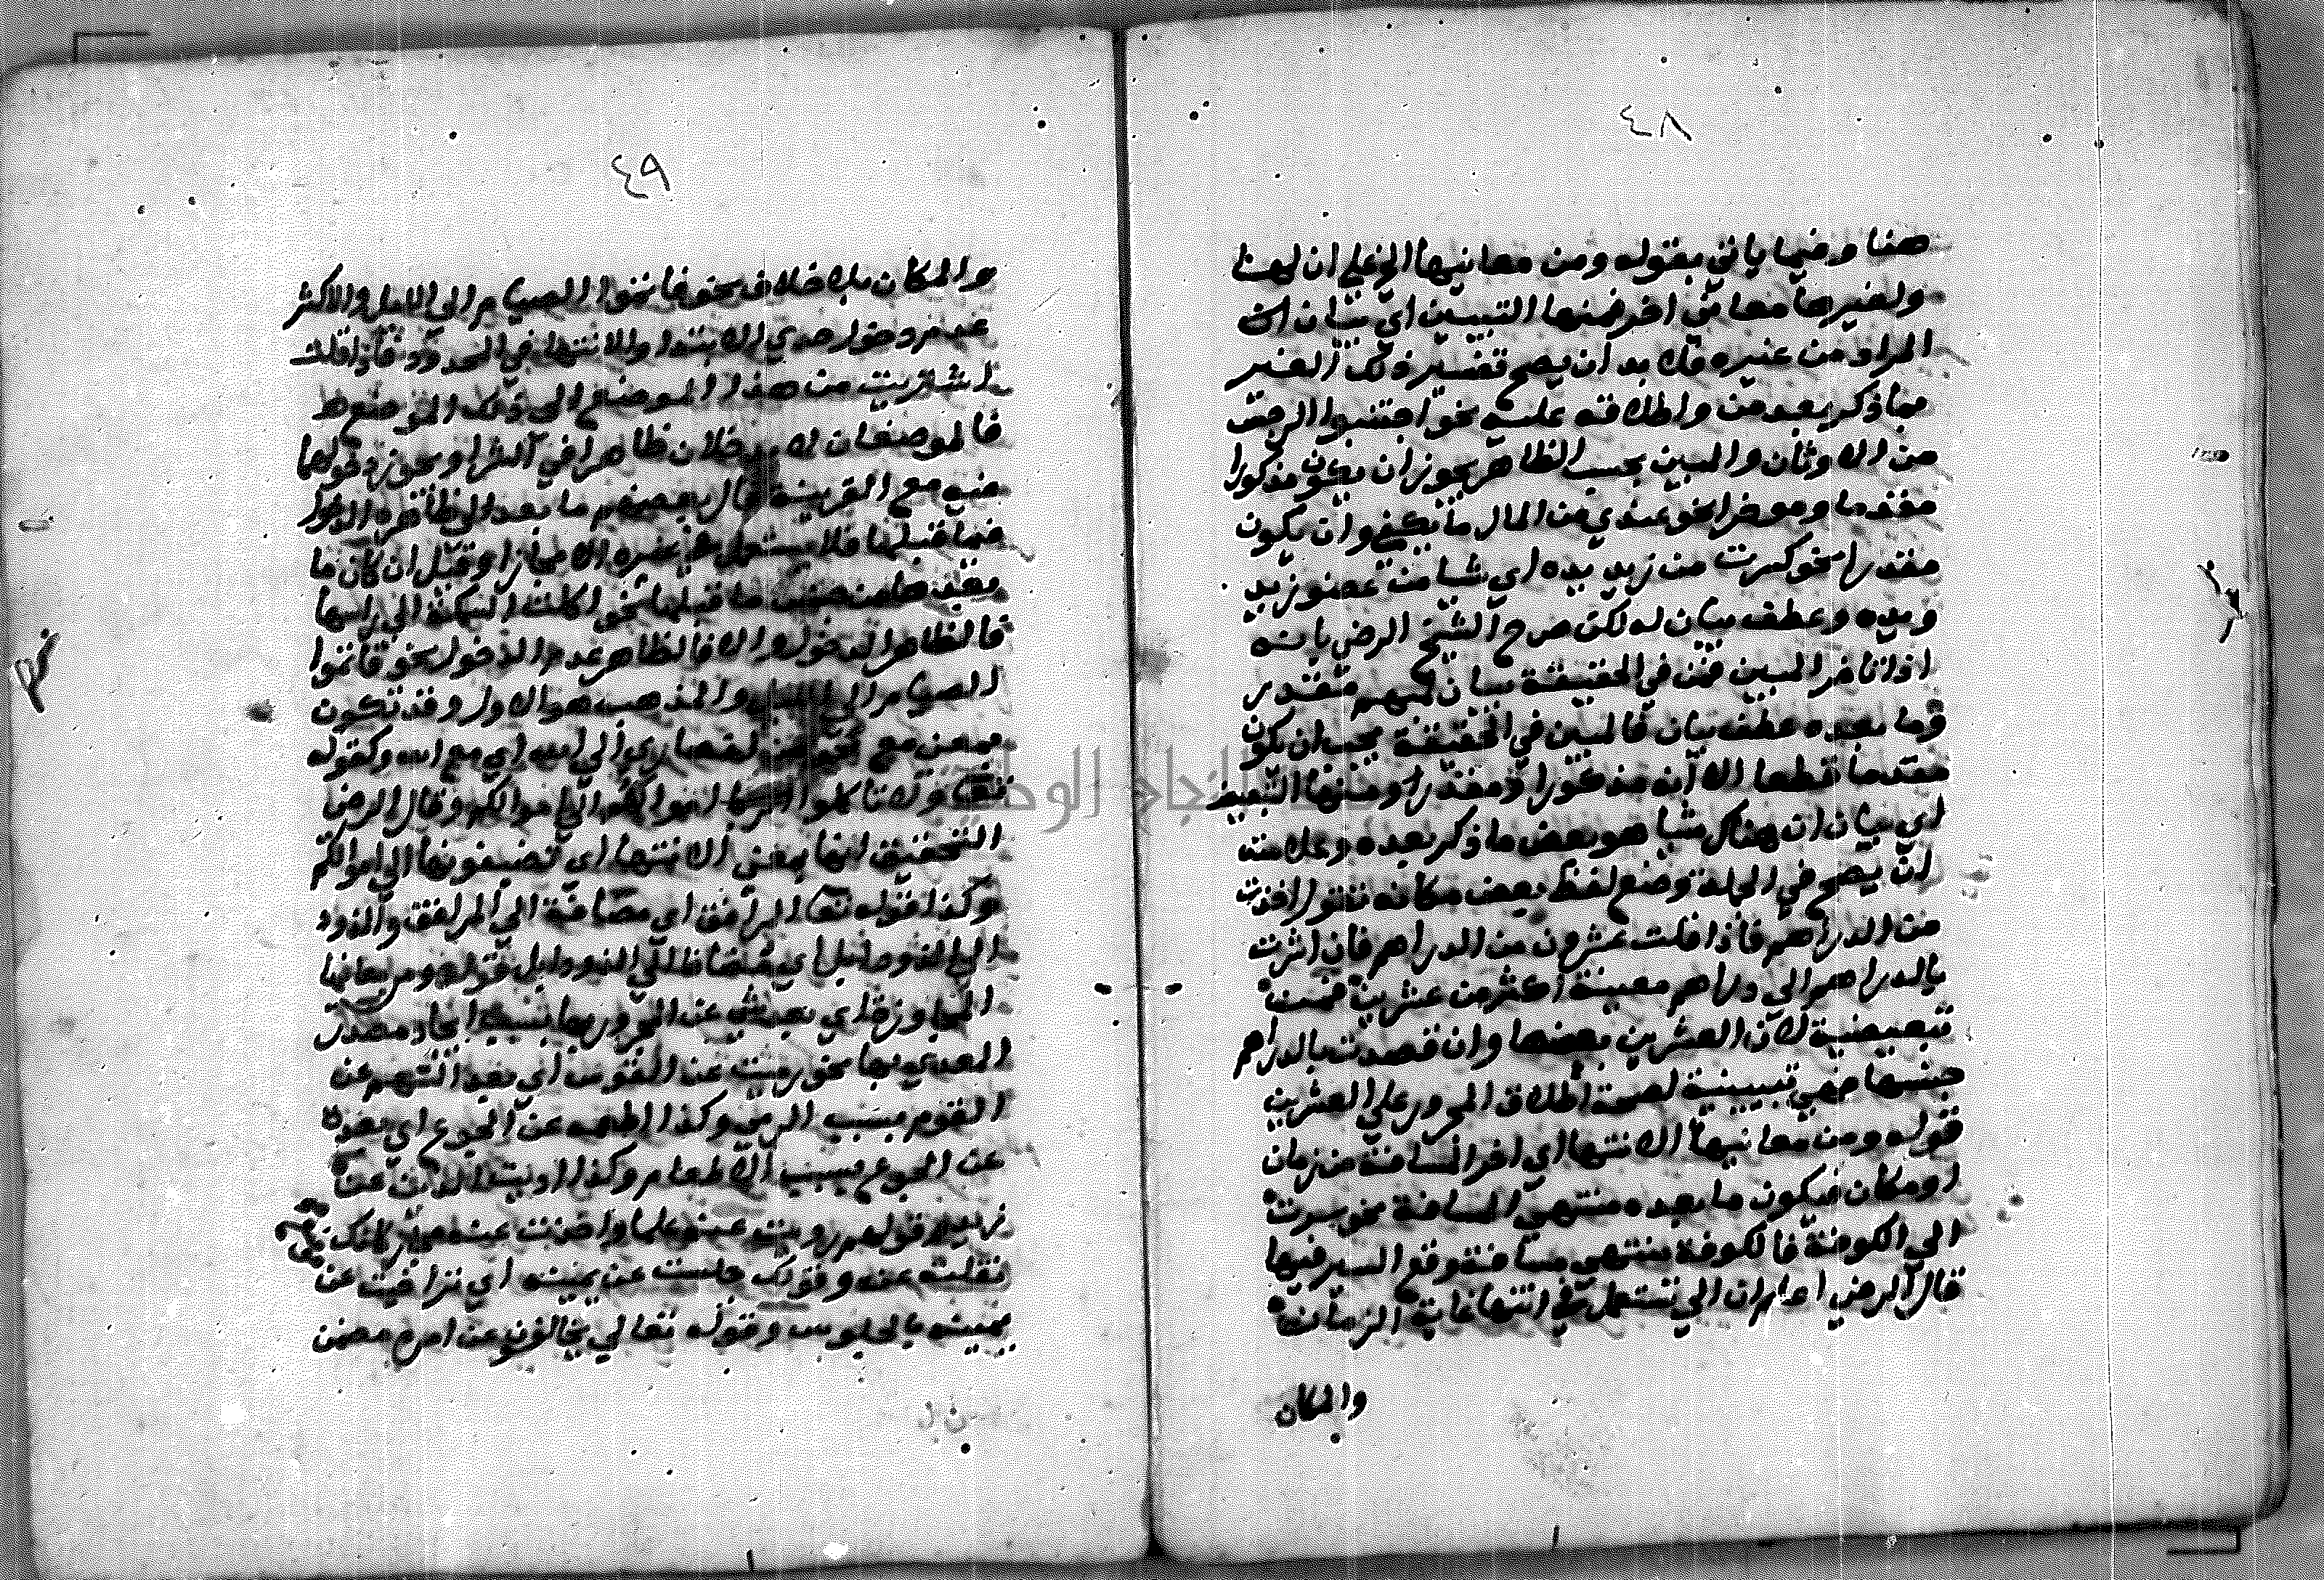 ٤٨
هنا وفيما ياتي بقوله ومن معانيها الخ علي ان لهنا
ولغيرها معاني اخر فمنها التبيين اي بيان ان
المراد من غيره فلا بد ان يصح تفسير ذلك الغير
بما ذكر بعد من واطلاقه عليه نحو اجتنبوا الرجس
من الاوثان والمبين بحسب الظاهر يجوز ان يكون مذكورا
مقدما وموخرا نحو عندي من المال ما يكفي وان يكون
مقدرا نحو كسرت من زيد يده اي شيا من عضو زيد
ويده وعطف بيان له لكن صرح الشيخ الرضي بانه
اذا تاخر المبين فمن في الحقيقة بيان لمبهم مقدر
وما بعده عطف بيان فالمبين في الحقيقة يجب ان يكون
مقدما قطعا الا انه مذكورا ومقدرا ومنها التبعيض
اي بيان ان هناك شيا هو بعض ما ذكر بعده وعلامته
ان يصح في الجملة وضع لفظ بعض مكانه تقول اخذت
من الدراهم فاذا قلت عشرون من الدراهم فان اشرت
بالدراهم الي دراهم معينة اكثر من عشرين فمن
تبعيضية لان العشرين بعضها وان قصدت بالدراهم
جنسها فهي تبيينية لصحة اطلاق المجرور علي العشرين
قوله ومن معانيها الانتها اي اخر المسافة من زمان
او مكان فيكون ما بعده منتهي المسافة نحو سرت
الي الكوفة فالكوفة منتهي مسافة وقع السير فيها
قال الرضي اعلم ان الي تستعمل في انتها غاية الزمان
والمكان
٤٩
والمكان بلا خلاف نحو فاتموا الصيام الي الليل والاكثر
عدم دخول حدي الابتدا والانتها في المحدود فاذا قلت
اشتريت من هذا الموضع الي ذلك الموضع
فالموضعان لا يدخلان ظاهرا في الشرا ويجوز دخولهما
فيه مع القرينة قال بعضهم ما بعد الي ظاهره الدخول
فيما قبلها فلا يستعمل في غيره الا مجازا وقيل ان كان ما
بعدها من جنس ما قبلها نحو اكلت السمكة الي راسها
فالظاهر الدخول والا فالظاهر عدم الدخول نحو فاتموا
الصيام الي الليل والمذهب هو الاول وقد تكون
بمعني مع نحو من انصاري الي الله اي مع الله وكقوله
تعا ولا تاكلوا اموالهم الي اموالكم وقال الرضي
التحقيق انها بمعني الانتها اي تضيفونها الي اموالكم
وكذا قوله تعا المرافق اي مضافة الي المرافق والذود
الي الذود ابل اي مضافا الي الذود ابل قوله ومن معانيها
المجاوزة اي بعد شي عن المجرور بها بسبب ايجاد مصدر
المعدي بها نحو رميت عن القوس اي بعد السهم عن
القوس بسبب الرمي وكذا اطعمه عن الجوع اي بعده
عن الجوع بسبب الاطعام وكذا اديت الدين عن
زيد وقولهم رويت عنه علما واخذت عنه كانك
نقلته عنه وقولك جلست عن يمينه اي تراخيت عن
يمينه بالجلوس وقوله تعالي يخالفون عن امره مضمن